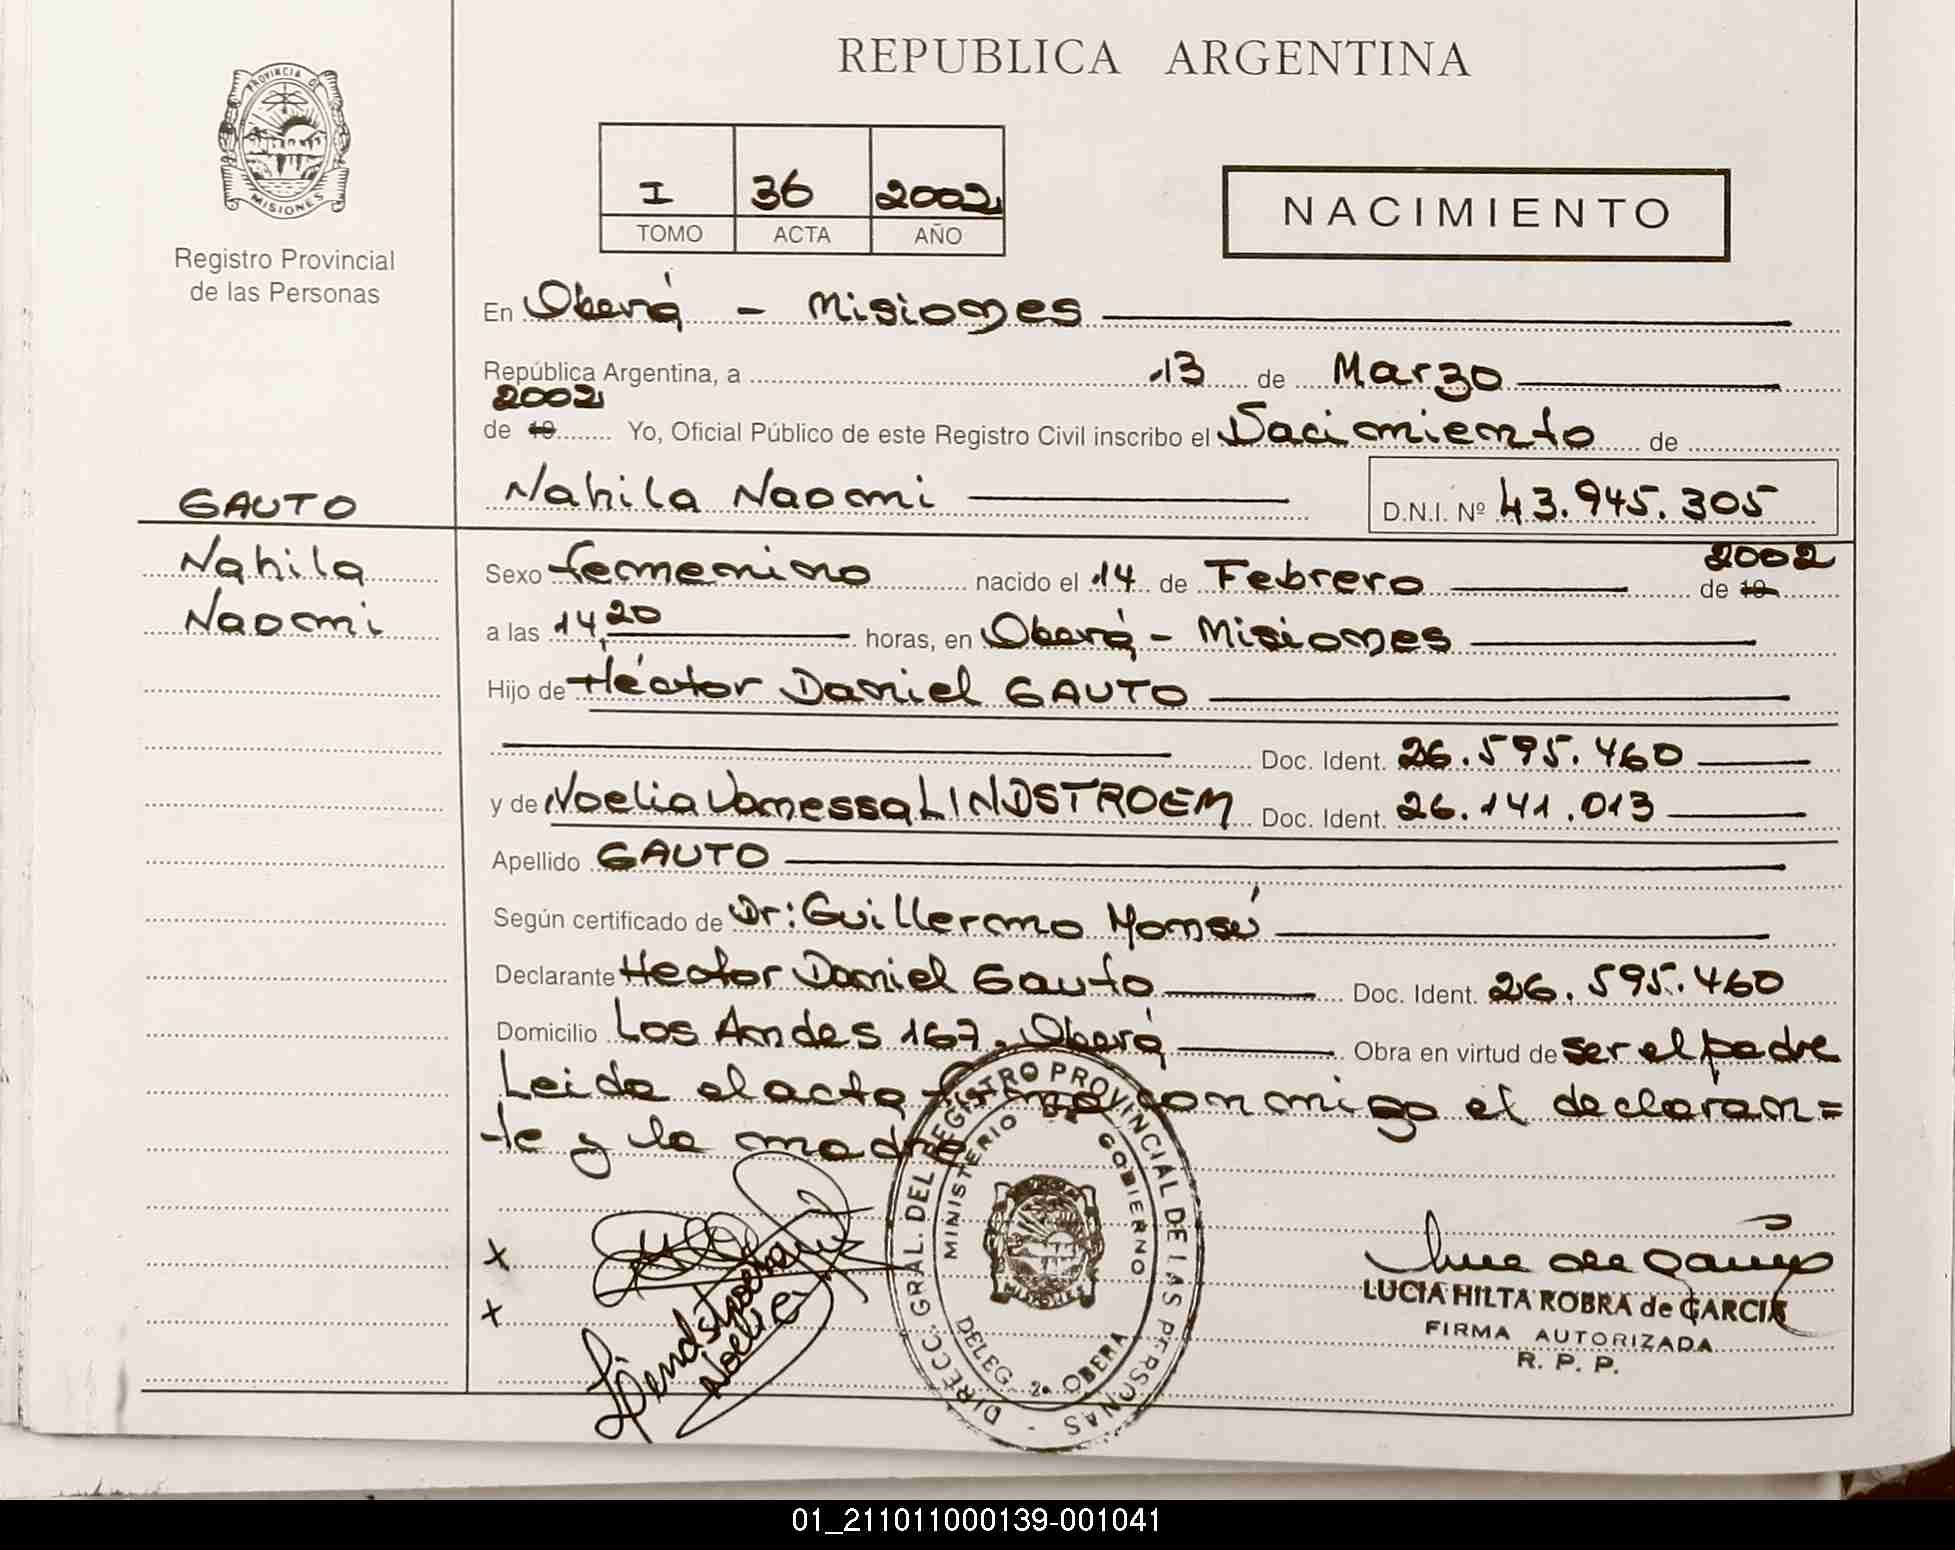 REPUBLICA ARGENTINA
PROVINCIA DE
MISIONES
Registro Provincial
de las Personas
I 36 2002
TOMO ACTA AÑO
NACIMIENTO
En Oberá - Misiones
República Argentina, a 13 de Marzo
2002
de 19 Yo, Oficial Público de este Registro Civil inscribo el Nacimiento de
Nahila Naomi D.N.I. Nº 43.945.305
GAUTO
Nahila
Naomi
2002
Sexo femenino nacido el 14 de Febrero de 19
a las 14,20 horas, en Oberá - Misiones
Hijo de Héctor Daniel GAUTO
Doc. Ident. 26.595.460
y de Noelia Vanessa LINDSTROEM Doc. Ident. 26.141.013
Apellido GAUTO
Según certificado de Dr: Guillermo Monsú
Declarante Hector Daniel Gauto Doc. Ident. 26.595.460
Domicilio Los Andes 167, Oberá Obra en virtud de ser el padre
Leida el acta firma conmigo el declaran=
te y la madre
DIRECC. GRAL. DEL REGISTRO PROVINCIAL DE LAS PERSONAS
MINISTERIO GOBIERNO
MISIONES
DELEG. 2ª OBERA
x
x
Lindstroem
Noelia
LUCIA HILTA ROBRA de GARCIA
FIRMA AUTORIZADA
R. P. P.
01_211011000139-001041